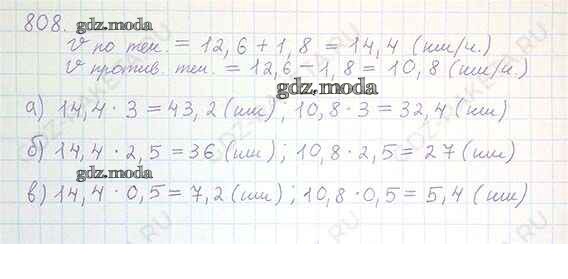 808. gdz.moda
V по теч. = 12,6 + 1,8 = 14,4 (км/ч.)
V против. теч. = 12,6 - 1,8 = 10,8 (км/ч.)
gdz.moda
а) 14,4 · 3 = 43,2 (км), 10,8 · 3 = 32,4 (км)
б) 14,4 · 2,5 = 36 (км); 10,8 · 2,5 = 27 (км)
gdz.moda
в) 14,4 · 0,5 = 7,2 (км); 10,8 · 0,5 = 5,4 (км)